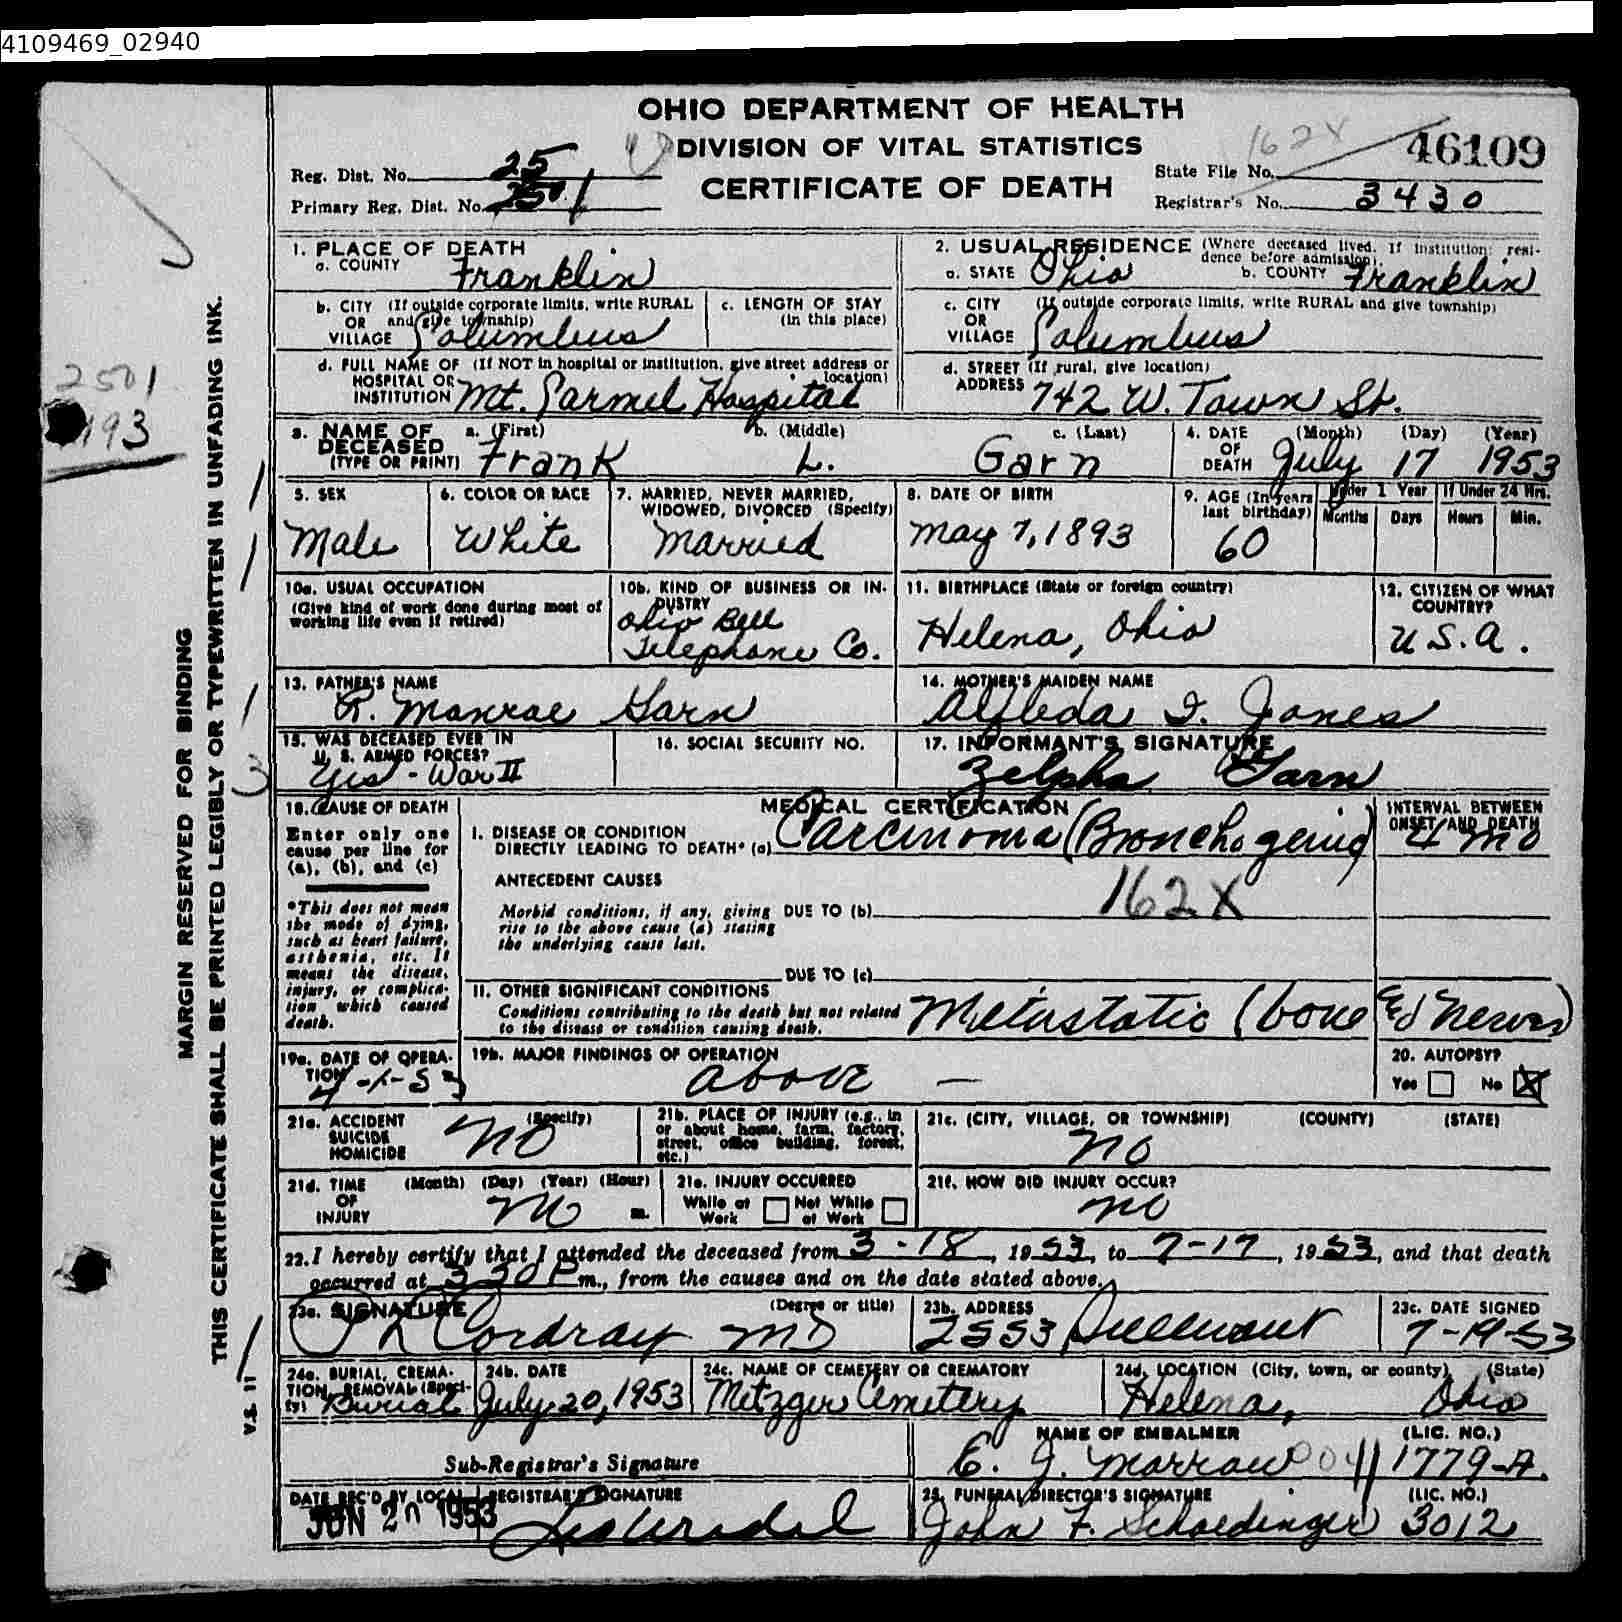 4109469_02940
OHIO DEPARTMENT OF HEALTH
DIVISION OF VITAL STATISTICS
CERTIFICATE OF DEATH
Reg. Dist. No. 25
Primary Reg. Dist. No. 2501
162X
State File No. 46109
Registrar's No. 3430
2501
193
MARGIN RESERVED FOR BINDING
THIS CERTIFICATE SHALL BE PRINTED LEGIBLY OR TYPEWRITTEN IN UNFADING INK.
V.S. 11
1. PLACE OF DEATH
a. COUNTY Franklin
b. CITY (If outside corporate limits, write RURAL
OR and give township)
VILLAGE Columbus
c. LENGTH OF STAY
(in this place)
d. FULL NAME OF (If NOT in hospital or institution, give street address or
HOSPITAL OR location)
INSTITUTION Mt. Carmel Hospital
2. USUAL RESIDENCE (Where deceased lived. If institution: resi-
dence before admission).
a. STATE Ohio b. COUNTY Franklin
c. CITY (If outside corporate limits, write RURAL and give township)
OR
VILLAGE Columbus
d. STREET (If rural, give location)
ADDRESS 742 W. Town St.
3. NAME OF a. (First) b. (Middle) c. (Last)
DECEASED
(TYPE OR PRINT) Frank L. Garn
4. DATE (Month) (Day) (Year)
OF
DEATH July 17 1953
5. SEX
Male
6. COLOR OR RACE
White
7. MARRIED, NEVER MARRIED,
WIDOWED, DIVORCED (Specify)
Married
8. DATE OF BIRTH
May 7, 1893
9. AGE (In years
last birthday)
60
Under 1 Year
Months Days
If Under 24 Hrs.
Hours Min.
10a. USUAL OCCUPATION
(Give kind of work done during most of
working life even if retired)
10b. KIND OF BUSINESS OR IN-
DUSTRY
Ohio Bell
Telephone Co.
11. BIRTHPLACE (State or foreign country)
Helena, Ohio
12. CITIZEN OF WHAT
COUNTRY?
U.S.A.
13. FATHER'S NAME
R. Monroe Garn
14. MOTHER'S MAIDEN NAME
Alfleda I. Jones
15. WAS DECEASED EVER IN
U. S. ARMED FORCES?
Yes - War II
16. SOCIAL SECURITY NO.
17. INFORMANT'S SIGNATURE
Zelpha Garn
18. CAUSE OF DEATH
Enter only one
cause per line for
(a), (b), and (c)
*This does not mean
the mode of dying,
such as heart failure,
asthenia, etc. It
means the disease,
injury, or complica-
tion which caused
death.
MEDICAL CERTIFICATION
I. DISEASE OR CONDITION
DIRECTLY LEADING TO DEATH* (a) Carcinoma (Bronchogenic)
INTERVAL BETWEEN
ONSET AND DEATH
4 mo
ANTECEDENT CAUSES
162X
Morbid conditions, if any, giving DUE TO (b)
rise to the above cause (a) stating
the underlying cause last.
DUE TO (c)
II. OTHER SIGNIFICANT CONDITIONS
Conditions contributing to the death but not related
to the disease or condition causing death.
Metastatic (bone
19a. DATE OF OPERA-
TION
4-1-53
19b. MAJOR FINDINGS OF OPERATION
above —
20. AUTOPSY?
Yes No X
21a. ACCIDENT (Specify)
SUICIDE
HOMICIDE
no
21b. PLACE OF INJURY (e.g., in
or about home, farm, factory,
street, office building, forest,
etc.)
21c. (CITY, VILLAGE, OR TOWNSHIP) (COUNTY) (STATE)
no
21d. TIME (Month) (Day) (Year) (Hour)
OF
INJURY no m.
21e. INJURY OCCURRED
While at Not While
Work at Work
21f. HOW DID INJURY OCCUR?
no
22. I hereby certify that I attended the deceased from 3-18, 1953, to 7-17, 1953, and that death
occurred at 330 P m., from the causes and on the date stated above.
23a. SIGNATURE (Degree or title)
Cordray MD
23b. ADDRESS
2553
23c. DATE SIGNED
7-19-53
24a. BURIAL, CREMA-
TION, REMOVAL (Speci-
fy) Burial
24b. DATE
July 20, 1953
24c. NAME OF CEMETERY OR CREMATORY
Metzger Cemetery
24d. LOCATION (City, town, or county) (State)
Helena, Ohio
Sub-Registrar's Signature
NAME OF EMBALMER (LIC. NO.)
E. J. Morrow 1779-A.
DATE REC'D BY LOCAL
JUN 20 1953
REGISTRAR'S SIGNATURE
25. FUNERAL DIRECTOR'S SIGNATURE (LIC. NO.)
John F. Schoedinger 3012